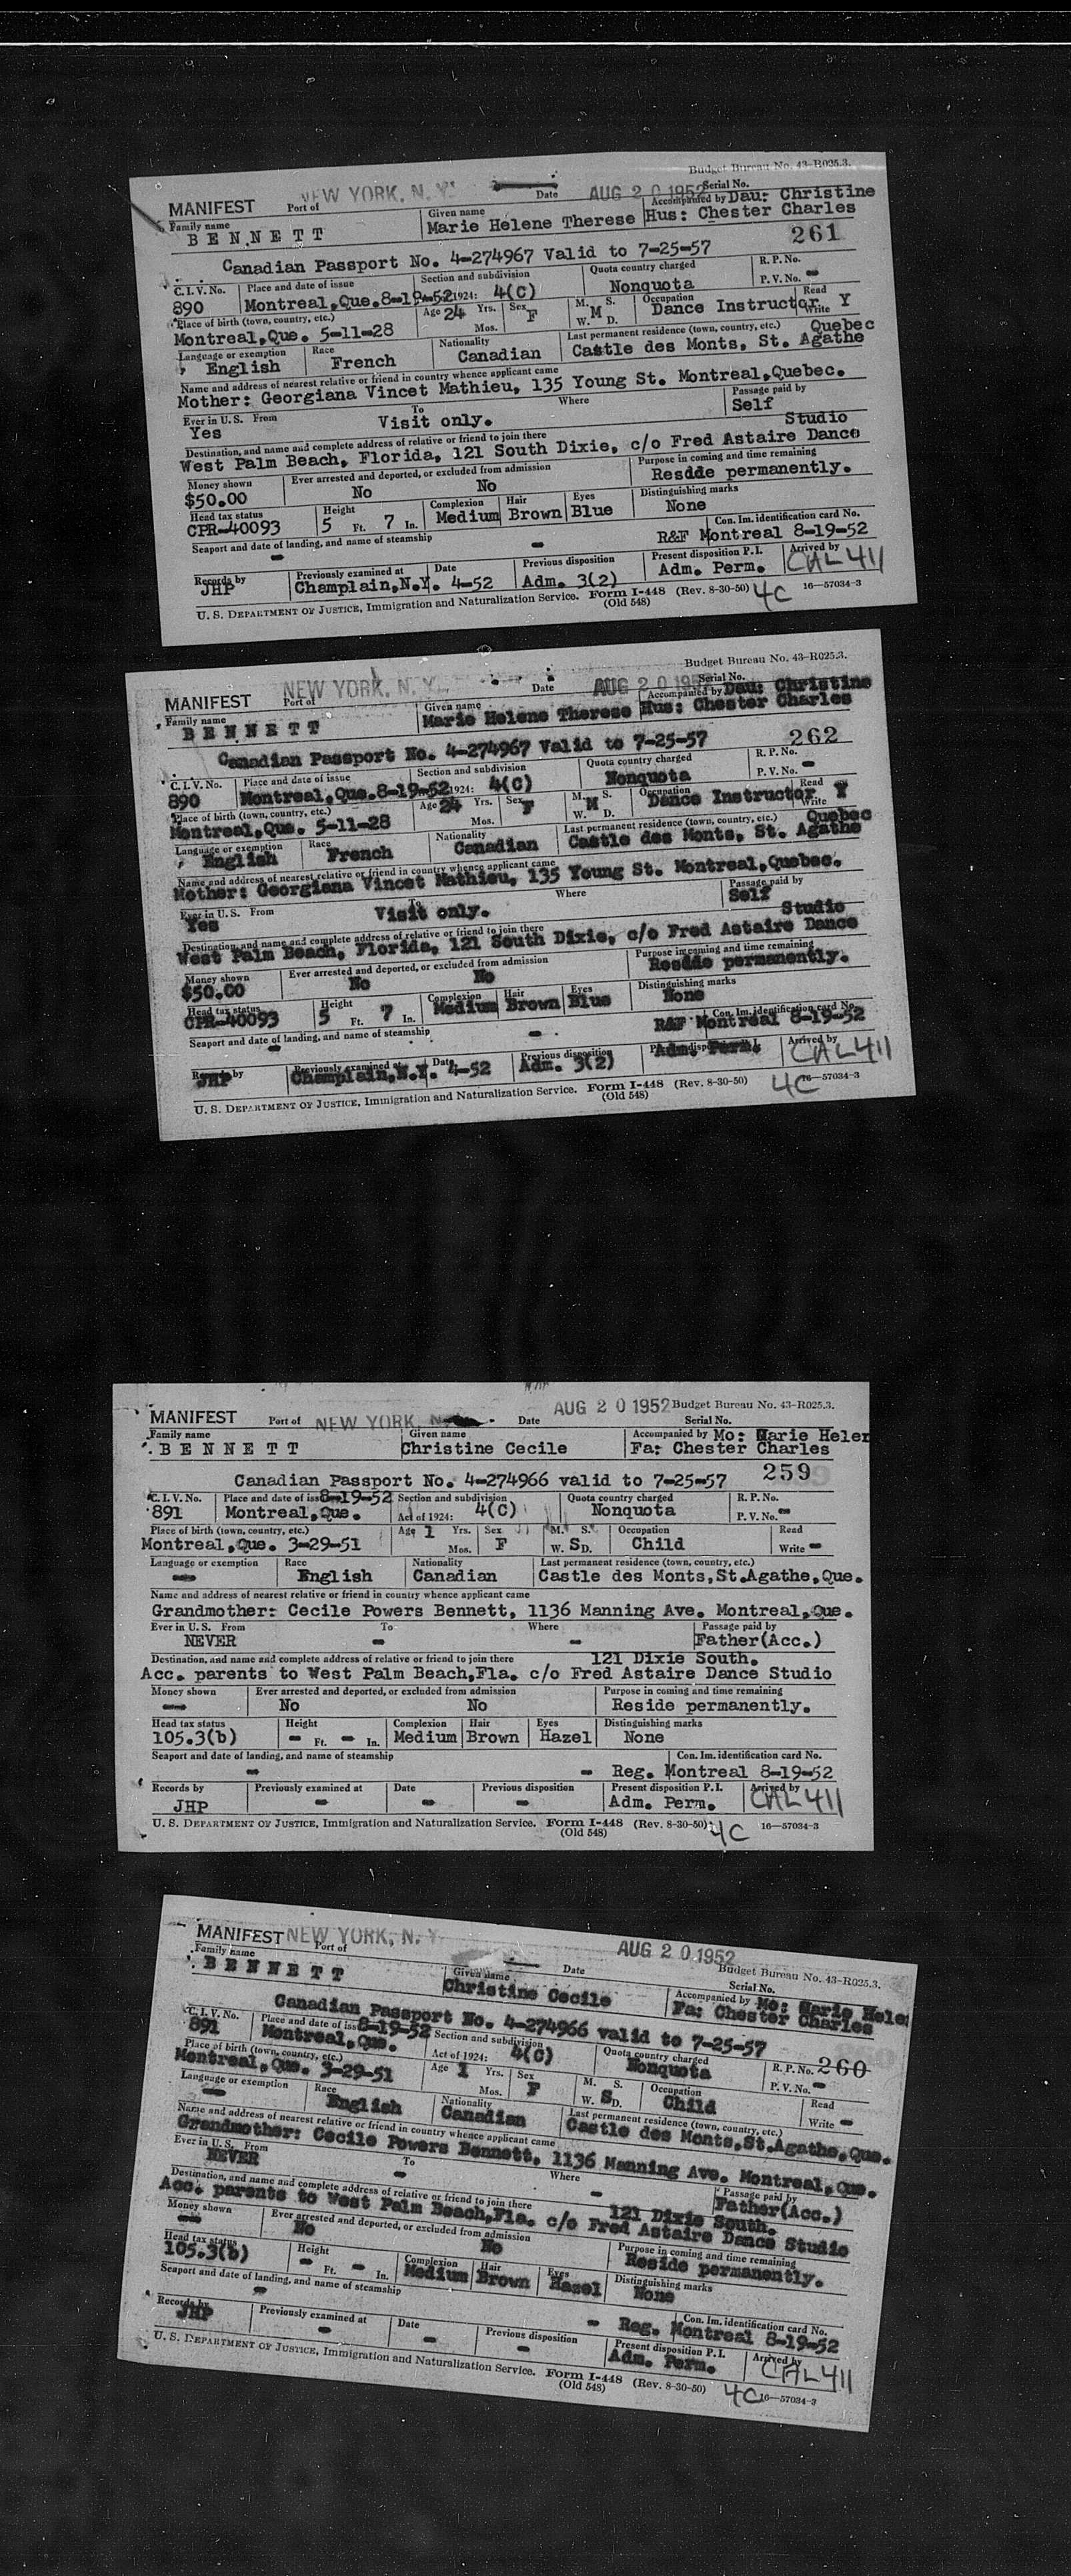 Budget Bureau No. 43-R025.3.
MANIFEST Port of NEW YORK, N. Y. Date AUG 20 1952 Serial No.
Family name Given name Accompanied by Dau: Christine
BENNETT Marie Helene Therese Hus: Chester Charles
261
Canadian Passport No. 4-274967 Valid to 7-25-57
C. I. V. No. Place and date of issue Section and subdivision Quota country charged R. P. No.
890 Montreal,Que.8-19-52 1924: 4(C) Nonquota P. V. No. -
Place of birth (town, country, etc.) Age 24 Yrs. Sex M. S. Occupation Read
Montreal,Que. 5-11-28 Mos. F W. M D. Dance Instructor Write Y
Language or exemption Race Nationality Last permanent residence (town, country, etc.) Quebec
English French Canadian Castle des Monts, St. Agathe
Name and address of nearest relative or friend in country whence applicant came
Mother: Georgiana Vincet Mathieu, 135 Young St. Montreal,Quebec.
Ever in U. S. From To Where Passage paid by
Yes Visit only. Self
Destination, and name and complete address of relative or friend to join there Studio
West Palm Beach, Florida, 121 South Dixie, c/o Fred Astaire Dance
Money shown Ever arrested and deported, or excluded from admission Purpose in coming and time remaining
$50.00 No No Resdde permanently.
Head tax status Height Complexion Hair Eyes Distinguishing marks
CPR-40093 5 Ft. 7 In. Medium Brown Blue None
Seaport and date of landing, and name of steamship Con. Im. identification card No.
- - R&F Montreal 8-19-52
Records by Previously examined at Date Previous disposition Present disposition P. I. Arrived by
JHP Champlain,N.Y. 4-52 Adm. 3(2) Adm. Perm. CAL 411
U. S. DEPARTMENT OF JUSTICE, Immigration and Naturalization Service. Form I-448 (Rev. 8-30-50) 4C 16—57034-3
(Old 548)
Budget Bureau No. 43-R025.3.
MANIFEST NEW YORK, N. Y. Port of Date AUG 20 195 Serial No.
Family name Given name Accompanied by Dau: Christine
BENNETT Marie Helene Therese Hus: Chester Charles
262
Canadian Passport No. 4-274967 Valid to 7-25-57
C. I. V. No. Place and date of issue Section and subdivision Quota country charged R. P. No.
890 Montreal,Que.8-19-52 1924: 4(C) Nonquota P. V. No. -
Place of birth (town, country, etc.) Age 24 Yrs. Sex M. S. Occupation Read
Montreal,Que. 5-11-28 Mos. F W. M D. Dance Instructor Write Y
Language or exemption Race Nationality Last permanent residence (town, country, etc.) Quebec
English French Canadian Castle des Monts, St. Agathe
Name and address of nearest relative or friend in country whence applicant came
Mother: Georgiana Vincet Mathieu, 135 Young St. Montreal,Quebec.
Ever in U. S. From To Where Passage paid by
Yes Visit only. Self
Destination, and name and complete address of relative or friend to join there Studio
West Palm Beach, Florida, 121 South Dixie, c/o Fred Astaire Dance
Money shown Ever arrested and deported, or excluded from admission Purpose in coming and time remaining
$50.00 No No Resdde permanently.
Head tax status Height Complexion Hair Eyes Distinguishing marks
CPR-40093 5 Ft. 7 In. Medium Brown Blue None
Seaport and date of landing, and name of steamship Con. Im. identification card No.
- - R&F Montreal 8-19-52
Records by Previously examined at Date Previous disposition Present disposition P. I. Arrived by
JHP Champlain,N.Y. 4-52 Adm. 3(2) Adm. Perm. CAL 411
U. S. DEPARTMENT OF JUSTICE, Immigration and Naturalization Service. Form I-448 (Rev. 8-30-50) 4C 16—57034-3
(Old 548)
AUG 20 1952 Budget Bureau No. 43-R025.3.
MANIFEST Port of NEW YORK, N. Date Serial No.
Family name Given name Accompanied by Mo: Marie Helen
BENNETT Christine Cecile Fa: Chester Charles
Canadian Passport No. 4-274966 valid to 7-25-57 259
C. I. V. No. Place and date of iss 8-19-52 Section and subdivision Quota country charged R. P. No.
891 Montreal,Que. Act of 1924: 4(C) Nonquota P. V. No. -
Place of birth (town, country, etc.) Age 1 Yrs. Sex M. S. Occupation Read
Montreal,Que. 3-29-51 Mos. F W. S D. Child Write -
Language or exemption Race Nationality Last permanent residence (town, country, etc.)
- English Canadian Castle des Monts,St.Agathe,Que.
Name and address of nearest relative or friend in country whence applicant came
Grandmother: Cecile Powers Bennett, 1136 Manning Ave. Montreal,Que.
Ever in U. S. From To Where Passage paid by
NEVER - - Father(Acc.)
Destination, and name and complete address of relative or friend to join there 121 Dixie South.
Acc. parents to West Palm Beach,Fla. c/o Fred Astaire Dance Studio
Money shown Ever arrested and deported, or excluded from admission Purpose in coming and time remaining
- No No Reside permanently.
Head tax status Height Complexion Hair Eyes Distinguishing marks
105.3(b) - Ft. - In. Medium Brown Hazel None
Seaport and date of landing, and name of steamship Con. Im. identification card No.
- - Reg. Montreal 8-19-52
Records by Previously examined at Date Previous disposition Present disposition P. I. Arrived by
JHP - - - Adm. Perm. CAL 411
U. S. DEPARTMENT OF JUSTICE, Immigration and Naturalization Service. Form I-448 (Rev. 8-30-50) 4C 16—57034-3
(Old 548)
MANIFEST NEW YORK, N. Y. Port of Date AUG 20 1952 Budget Bureau No. 43-R025.3.
Serial No.
Family name Given name Accompanied by Mo: Marie Hele
BENNETT Christine Cecile Fa: Chester Charles
Canadian Passport No. 4-274966 valid to 7-25-57
C. I. V. No. Place and date of iss 8-19-52 Section and subdivision Quota country charged R. P. No. 260
891 Montreal,Que. Act of 1924: 4(C) Nonquota P. V. No. -
Place of birth (town, country, etc.) Age 1 Yrs. Sex M. S. Occupation Read
Montreal,Que. 3-29-51 Mos. F W. S D. Child Write -
Language or exemption Race Nationality Last permanent residence (town, country, etc.)
- English Canadian Castle des Monts,St.Agathe,Que.
Name and address of nearest relative or friend in country whence applicant came
Grandmother: Cecile Powers Bennett, 1136 Manning Ave. Montreal,Que.
Ever in U. S. From To Where Passage paid by
NEVER - - Father(Acc.)
Destination, and name and complete address of relative or friend to join there 121 Dixie South.
Acc. parents to West Palm Beach,Fla. c/o Fred Astaire Dance Studio
Money shown Ever arrested and deported, or excluded from admission Purpose in coming and time remaining
- No No Reside permanently.
Head tax status Height Complexion Hair Eyes Distinguishing marks
105.3(b) - Ft. - In. Medium Brown Hazel None
Seaport and date of landing, and name of steamship Con. Im. identification card No.
- - Reg. Montreal 8-19-52
Records by Previously examined at Date Previous disposition Present disposition P. I. Arrived by
JHP - - - Adm. Perm. CAL 411
U. S. DEPARTMENT OF JUSTICE, Immigration and Naturalization Service. Form I-448 (Rev. 8-30-50) 4C 16—57034-3
(Old 548)